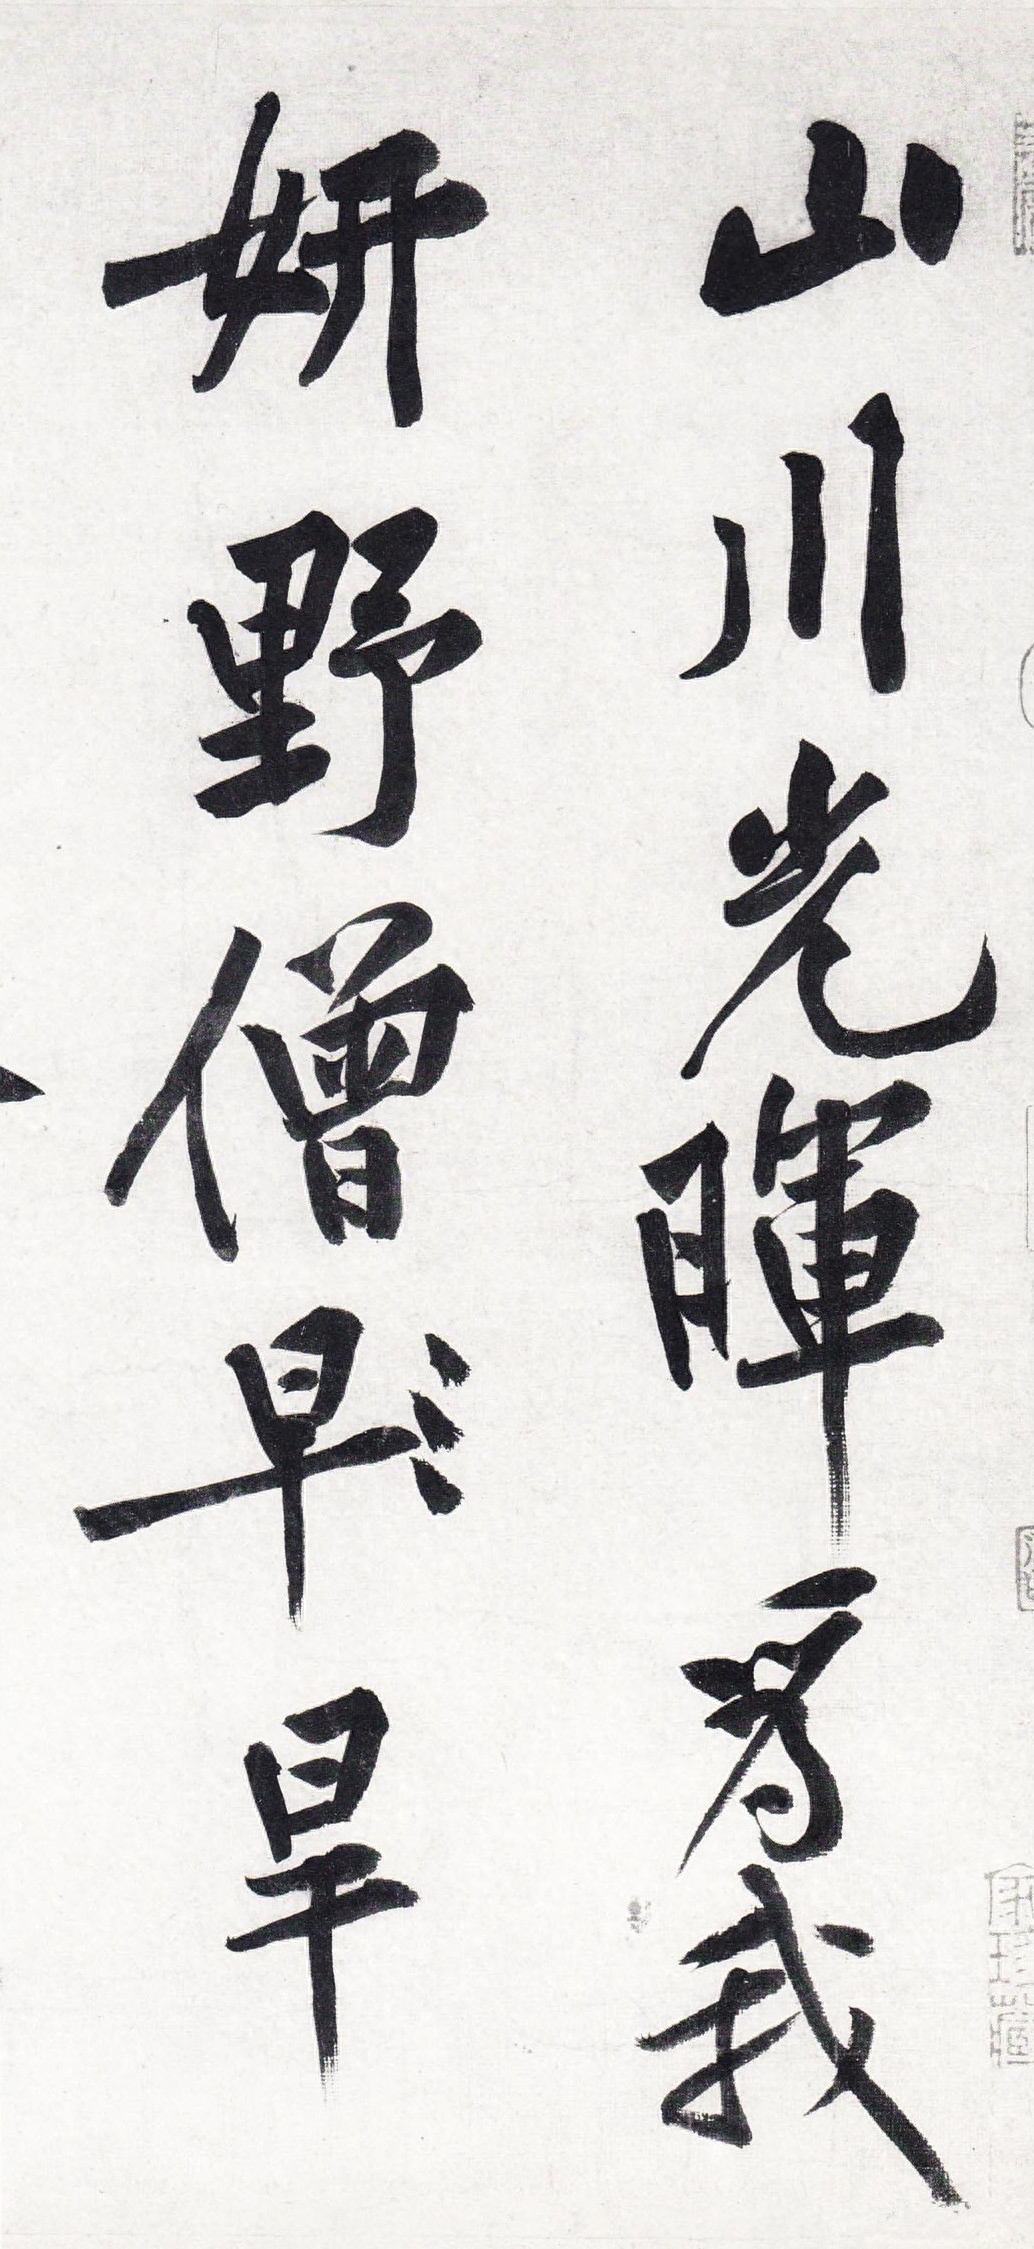 山川光暉為我
妍野僧早旱